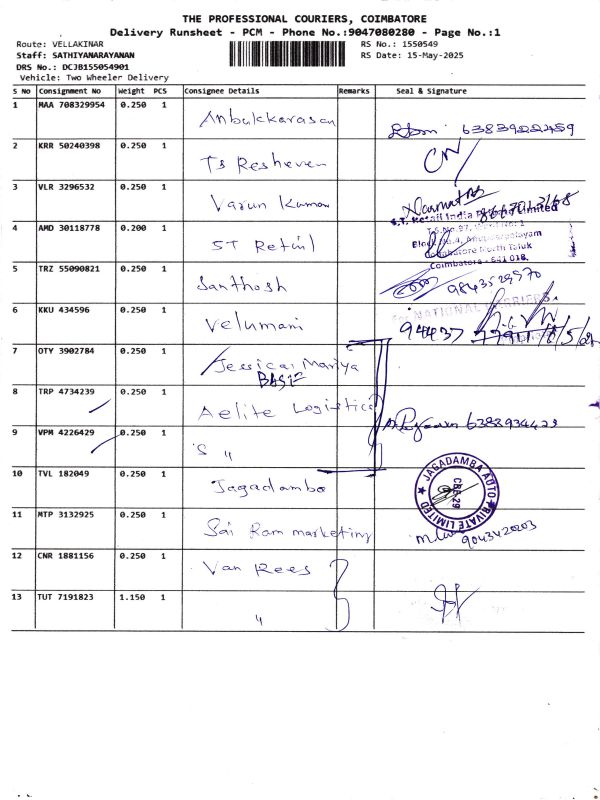 THE PROFESSIONAL COURIERS, COIMBATORE
Delivery Runsheet - PCM - Phone No.:9047080280 - Page No.:1
Route: VELLAKINAR RS No.: 1550549
Staff: SATHIYANARAYANAN RS Date: 15-May-2025
DRS No.: DCJB155054901
Vehicle: Two Wheeler Delivery
S No Consignment No Weight PCS Consignee Details Remarks Seal & Signature
1 MAA 708329954 0.250 1 Anbukkarasan
2 KRR 50240398 0.250 1 TS Resheven
3 VLR 3296532 0.250 1 Varun Kumar
S.T. Retail India Private Limited
4 AMD 30118778 0.200 1 ST Retail
Coimbatore North Taluk
Coimbatore - 641 018.
5 TRZ 55090821 0.250 1 Santhosh 9843529570
6 KKU 434596 0.250 1 Velumani
For NATIONAL CARRIERS
94437
7 OTY 3902784 0.250 1 Jessica Mariya
BASF
8 TRP 4734239 0.250 1 Aelite Logistics
9 VPM 4226429 0.250 1 S "
10 TVL 182049 0.250 1 Jagadamba
JAGADAMBA AUTO PRIVATE LIMITED
CBE-29
11 MTP 3132925 0.250 1 Sai Ram marketing 9043420203
12 CNR 1881156 0.250 1 Van Rees
13 TUT 7191823 1.150 1 "